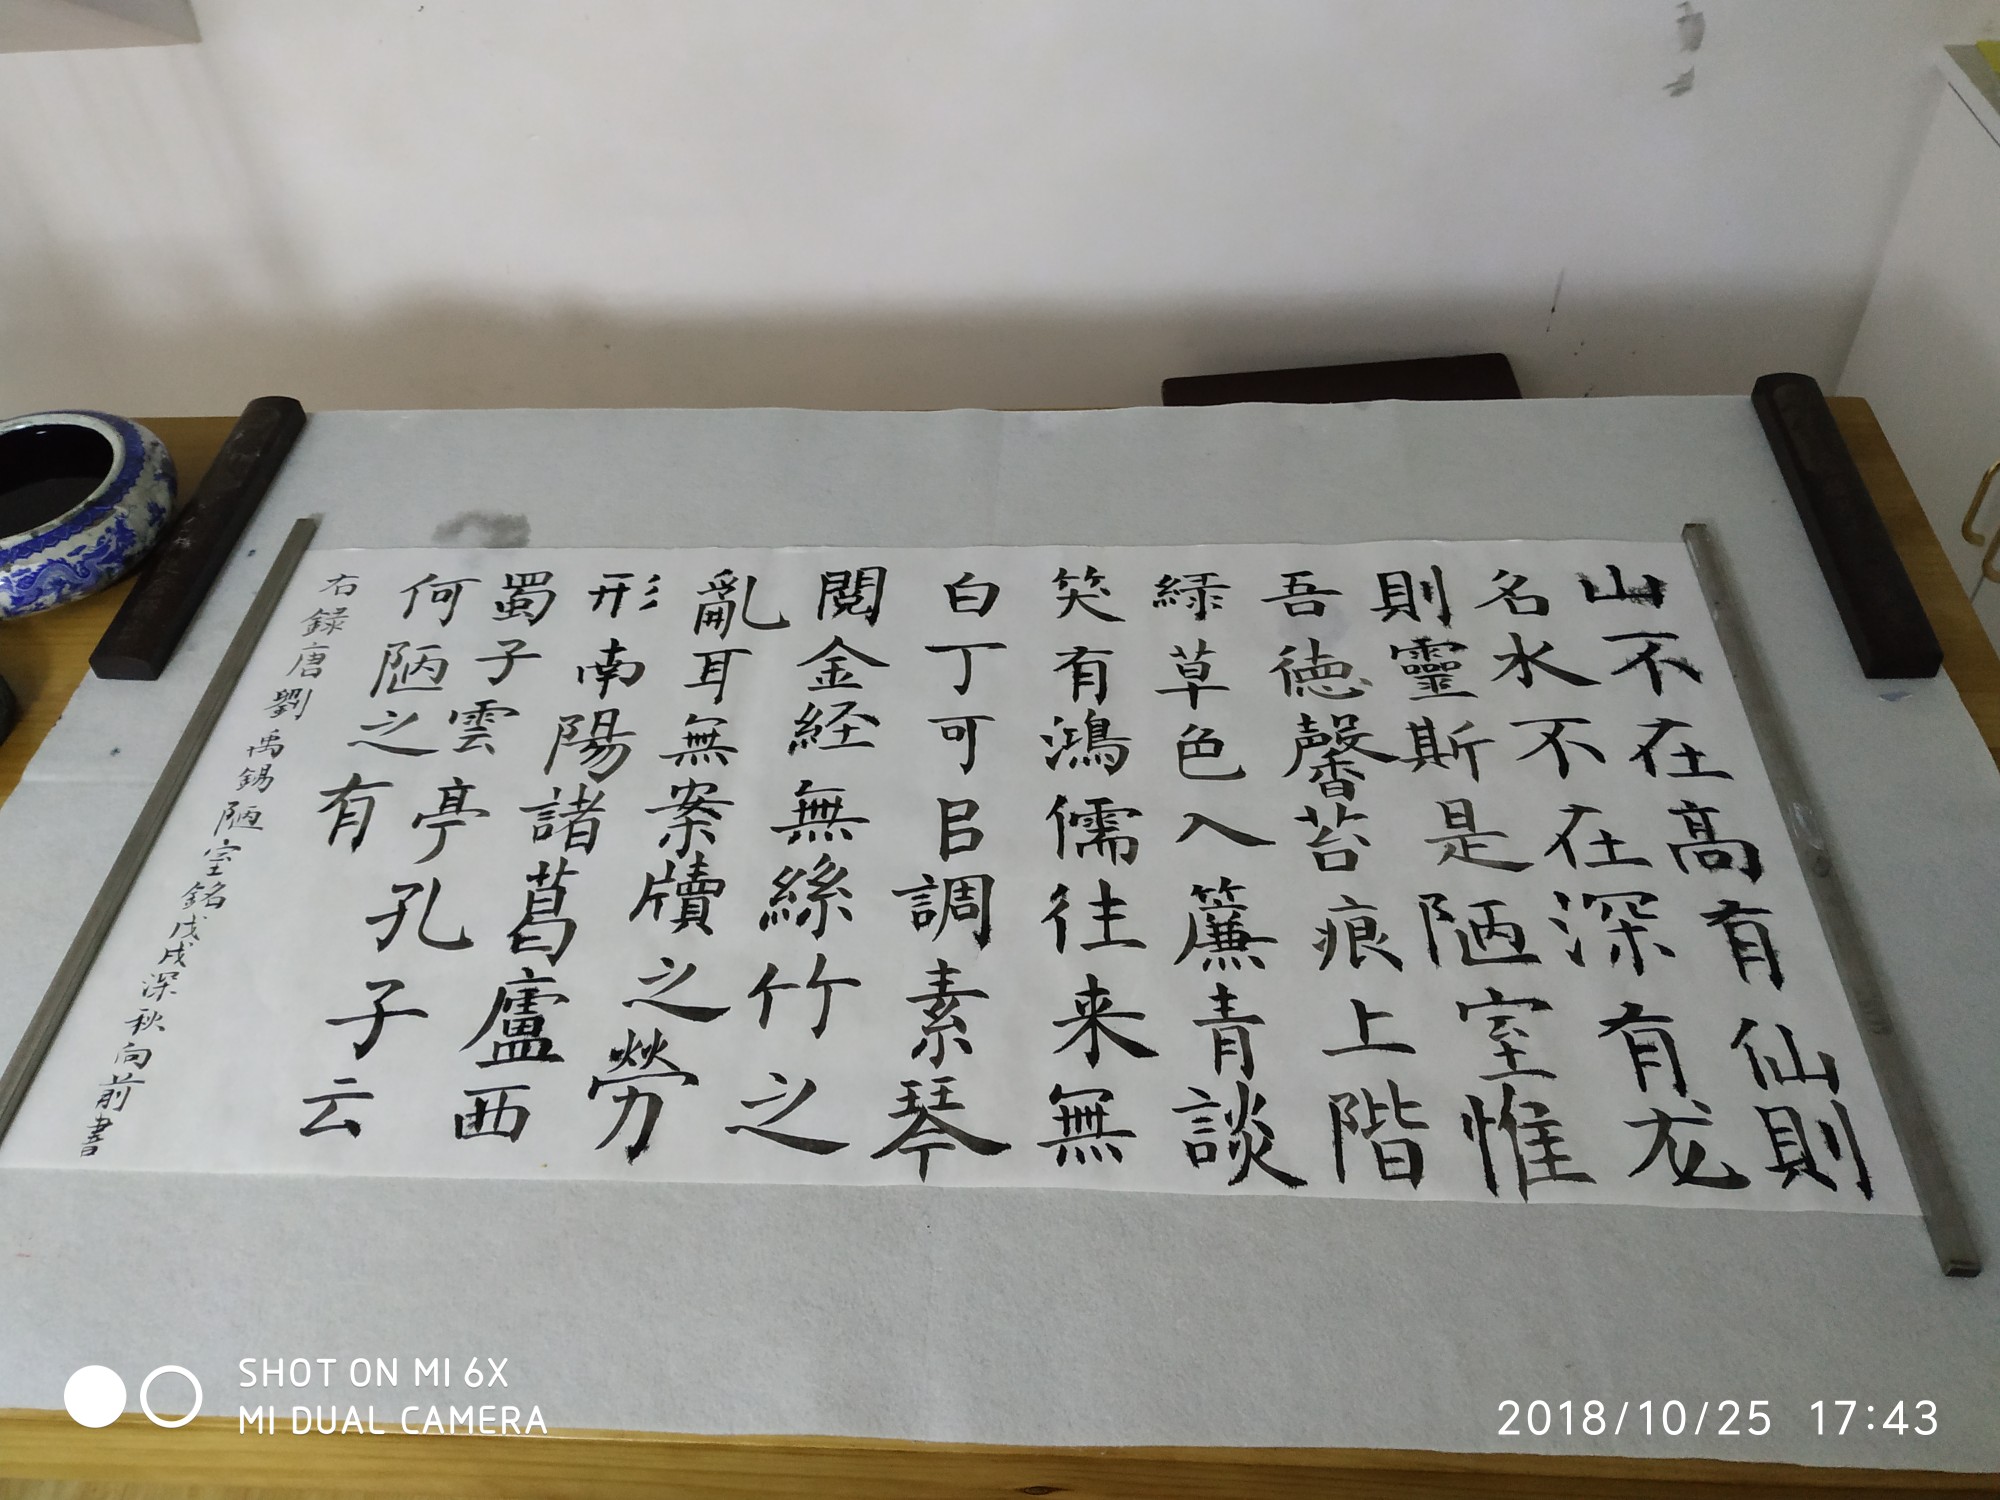 山不在高有仙則
名水不在深有龙
則靈斯是陋室惟
吾德馨苔痕上階
緑草色入簾青談
笑有鴻儒往来無
白丁可㠯調素琴
閲金経無絲竹之
亂耳無案牘之勞
形南陽諸葛廬西
蜀子雲亭孔子云
何陋之有
右録唐劉禹錫陋室銘戊戌深秋向前書
SHOT ON MI 6X
MI DUAL CAMERA
2018/10/25 17:43